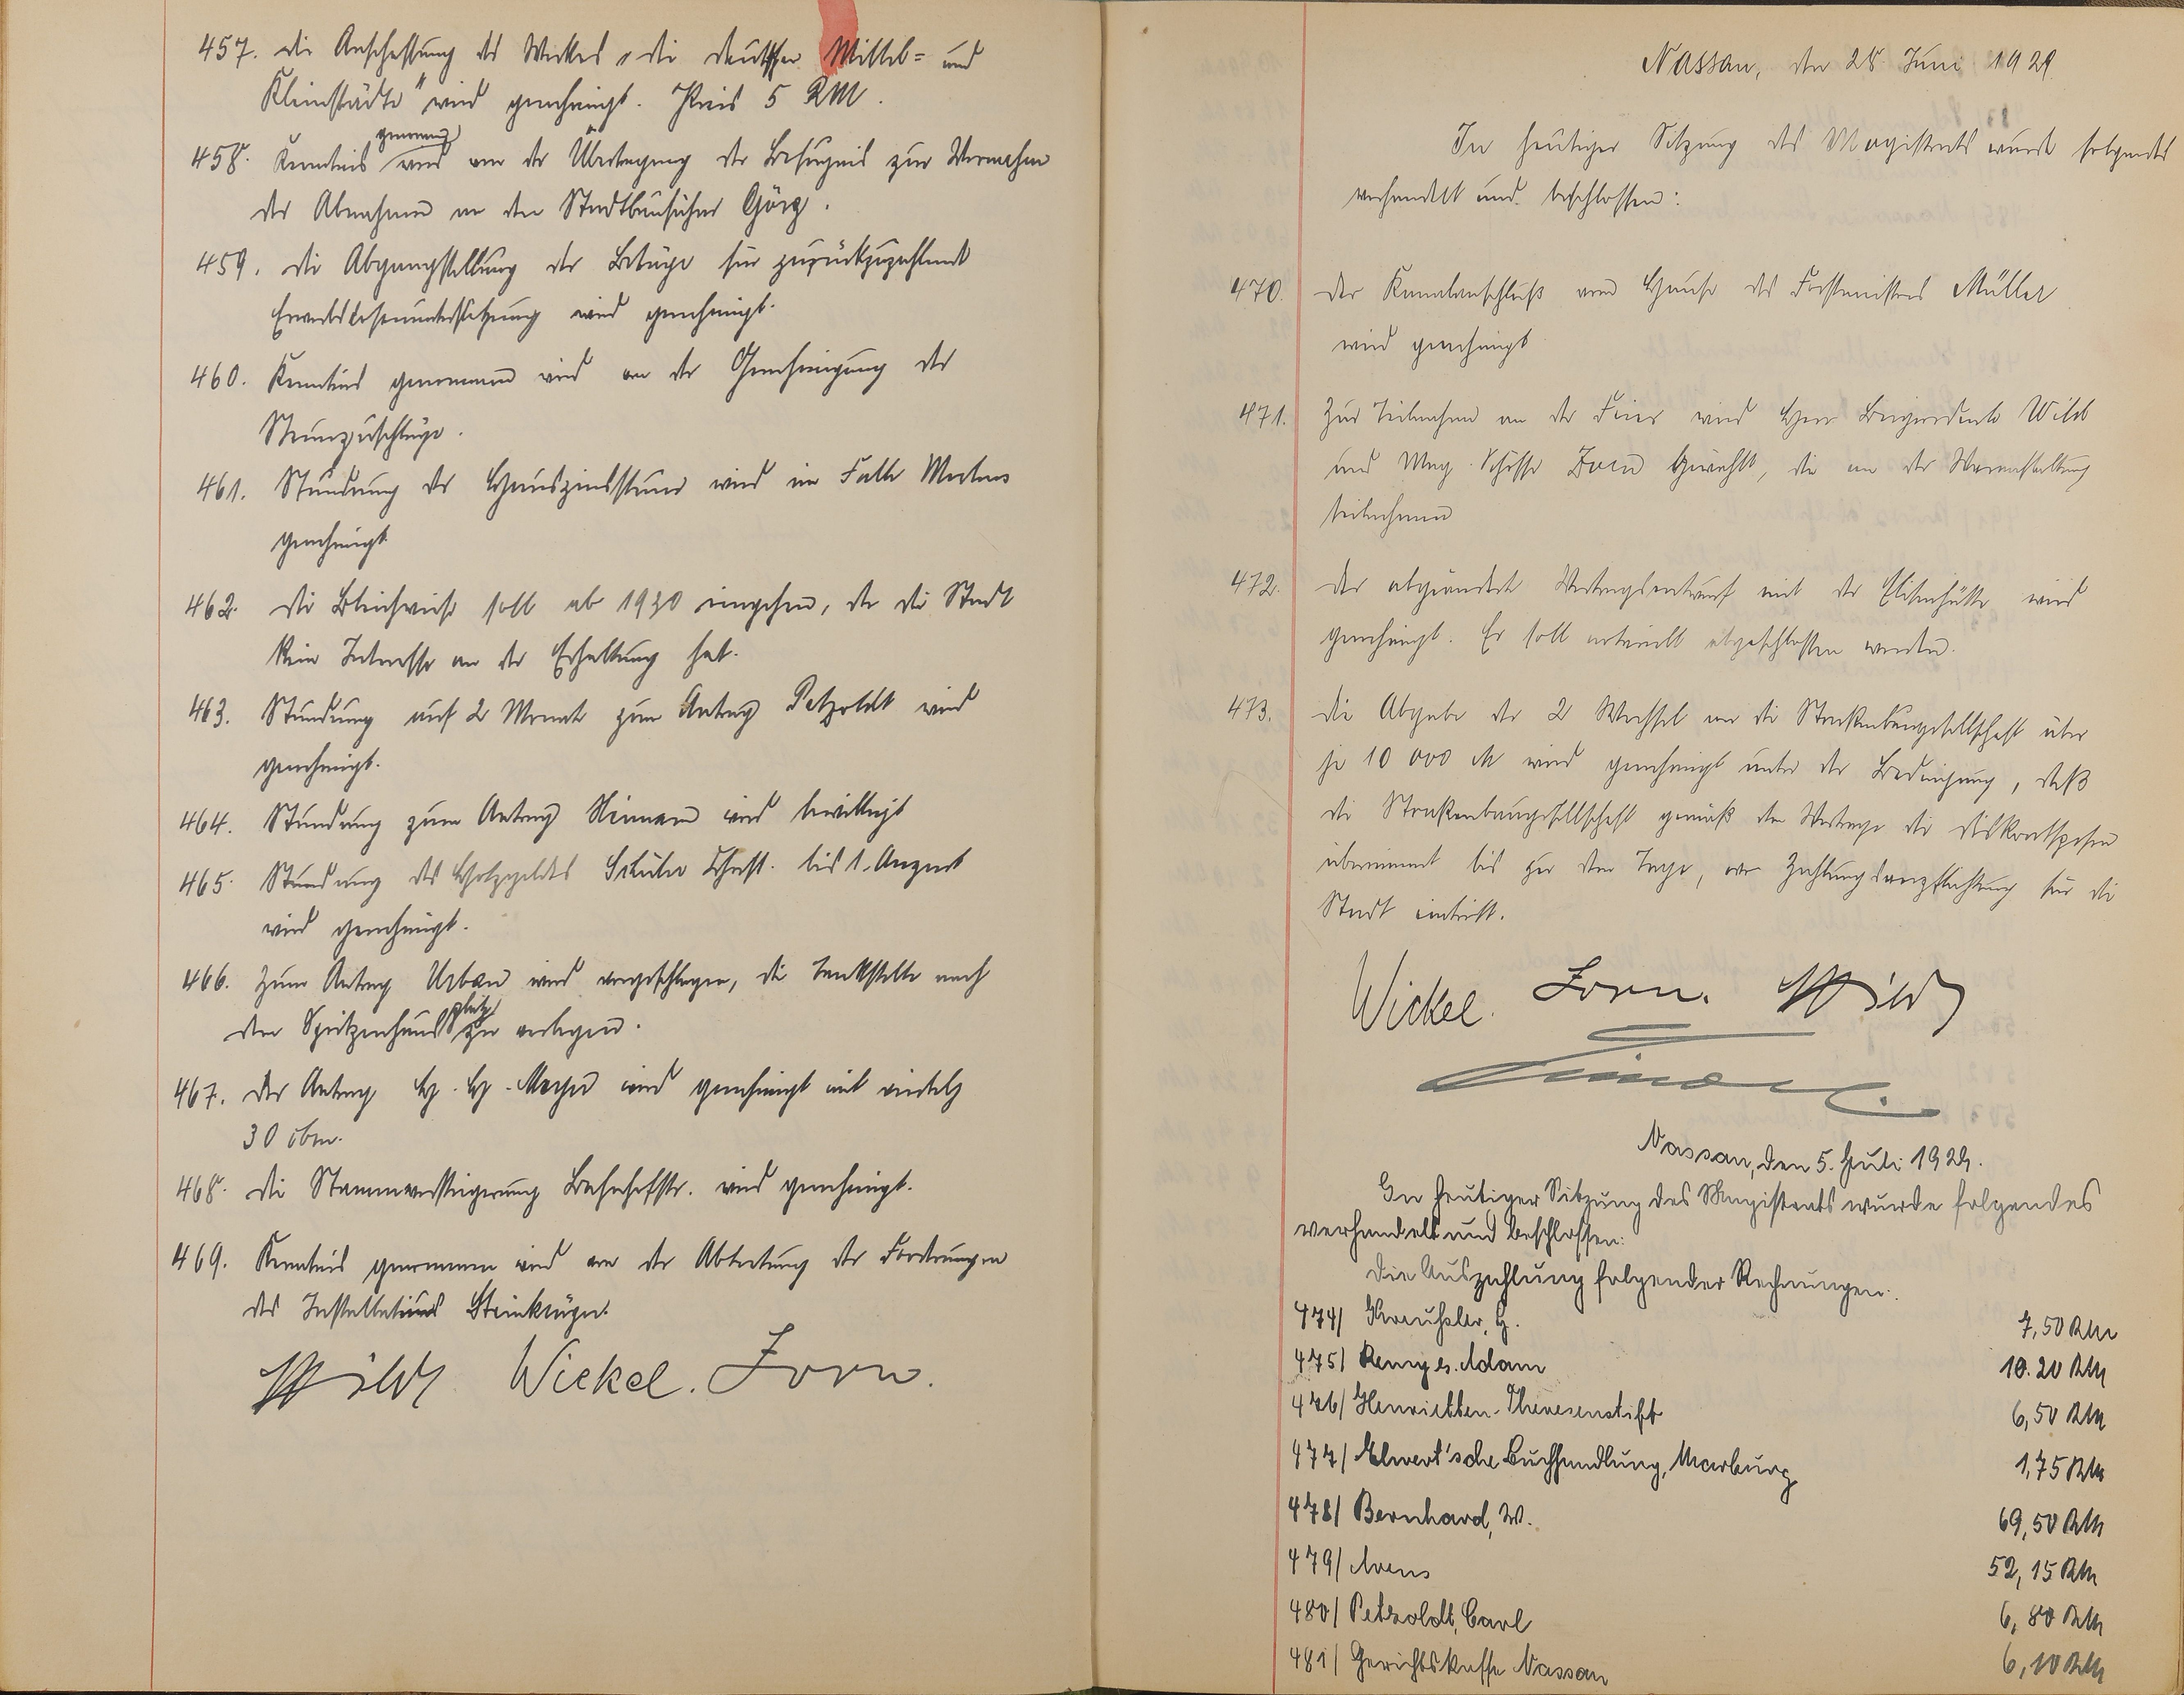 457. Die Anschaffung des Werkes „Die deutschen Mittel= und
Kleinstädte" wird genehmigt. Preis 5 RM.
genommen
458. Kenntnis wird von der Übertragung der Befugnis zur Vornahme
der Abnahmen an den Stadtbauführer Görg.
459. Die Abgangstellung der Beträge für zurückzuzahlende
Erwerbslosenunterstützung wird genehmigt.
460. Kenntnis genommen wird von der Genehmigung der
Steuerzuschläge.
461. Stundung der Hauszinssteuer wird im Falle Mertens
genehmigt
462. Die Bleichwiese soll ab 1930 eingehen, da die Stadt
kein Interesse an der Erhaltung hat.
463. Stundung auf 2 Monate zum Antrag Petzoldt wird
genehmigt.
464. Stundung zum Antrag wird bewilligt
465. Stundung des Holzgeldes Schuler bis 1. August
wird genehmigt.
466. Zum Antrag Urban wird vorgeschlagen, die Tankstelle nach
platz
dem Spritzenhaus zu verlegen.
467. Der Antrag wird genehmigt mit
30 cbm.
468. Die Stammversteigerung Bahnhofstr. wird genehmigt.
469. Kenntnis genommen wird von der Abtretung der Forderungen
des Installateurs Steinkrüger.
Wild Wickel. Zorn.
Nassau, den 28. Juni 1929
In heutiger Sitzung des Magistrats wurde folgendes
verhandelt und beschlossen:
470. Der Kanalanschluß vom Hause des Forstmeisters Müller
wird genehmigt
471. Zur Teilnahme an der Feier wird Herr Beigeordnete Wild
und Mag. Schöffe Zorn gewählt, die an der Veranstaltung
teilnehmen
472. Der abgeänderte Vertragsentwurf mit der Elisenhütte wird
genehmigt. Er soll notariell abgeschlossen werden.
473. Die Abgabe der 2 Wechsel an die Straßenbaugesellschaft über
je 10 000 M wird genehmigt unter der Bedingung, daß
die Straßenbaugesellschaft gemäß dem Vertrage die Diskontspesen
übernimmt bis zu dem Tage, wo Zahlungsverpflichtung für die
Stadt eintritt.
Wickel. Zorn. Wild
Nassau, den 5. Juli 1929.
In heutiger Sitzung des Magistrats wurde folgendes
verhandelt und beschlossen:
Die Auszahlung folgender Rechnungen:
474/ Kreuhsler, G. 7,50 RM
475/ Remy s. Adam 10.20 RM
476/ Henrietten-Theresenstift 6,50 RM
477/ Elwert'sche Buchhandlung, Marburg 1,75 RM
478/ Bernhard, W. 69,50 RM
479/ Arens 52,15 RM
480/ Petzoldt, Carl 6,80 RM
481/ Gerichtskasse Nassau 6,10 RM